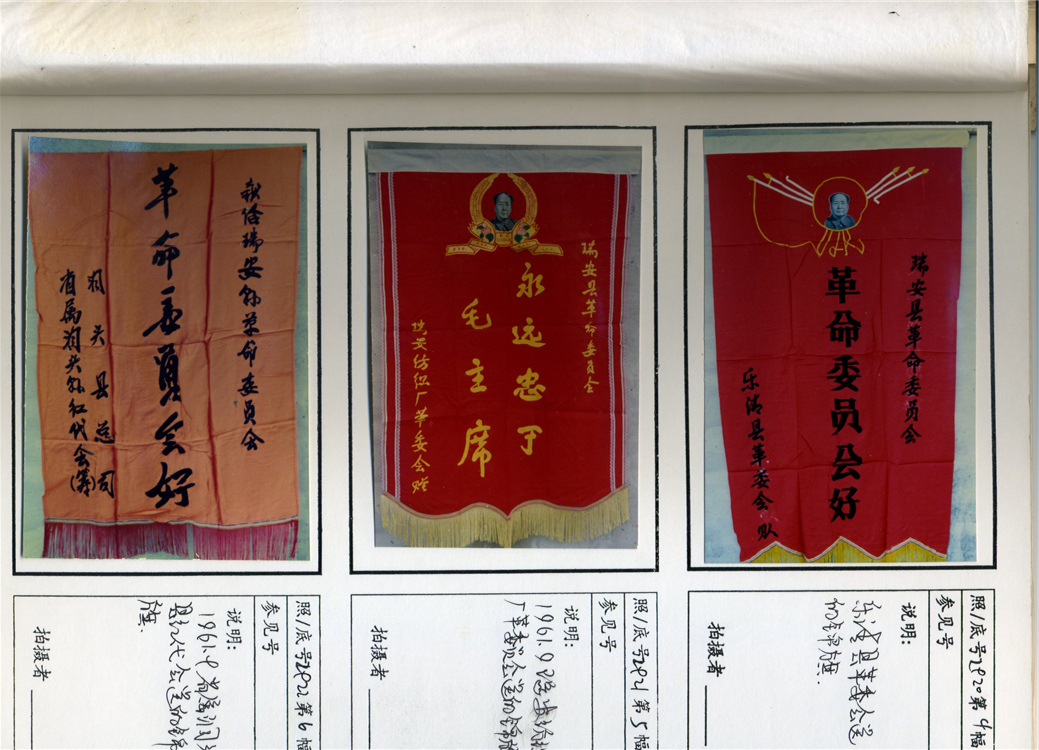 瑞安县革命委员会
革命委员会好
乐清县革委会
照/底号2420第4幅
参见号
说明:
乐清县革委会送
的锦旗.
拍摄者
瑞安县革命委员会
永远忠于
毛主席
瑞安纺织厂革委会贈
照/底号2421第5幅
参见号
说明:
1961.9瑞安纺织
厂革委会送的锦旗
拍摄者
革命委员会好
洞头县总司
省属洞头县红代会(筹)
照/底号2422第6幅
参见号
说明:
1961.9
县红代会送的锦
旗.
拍摄者